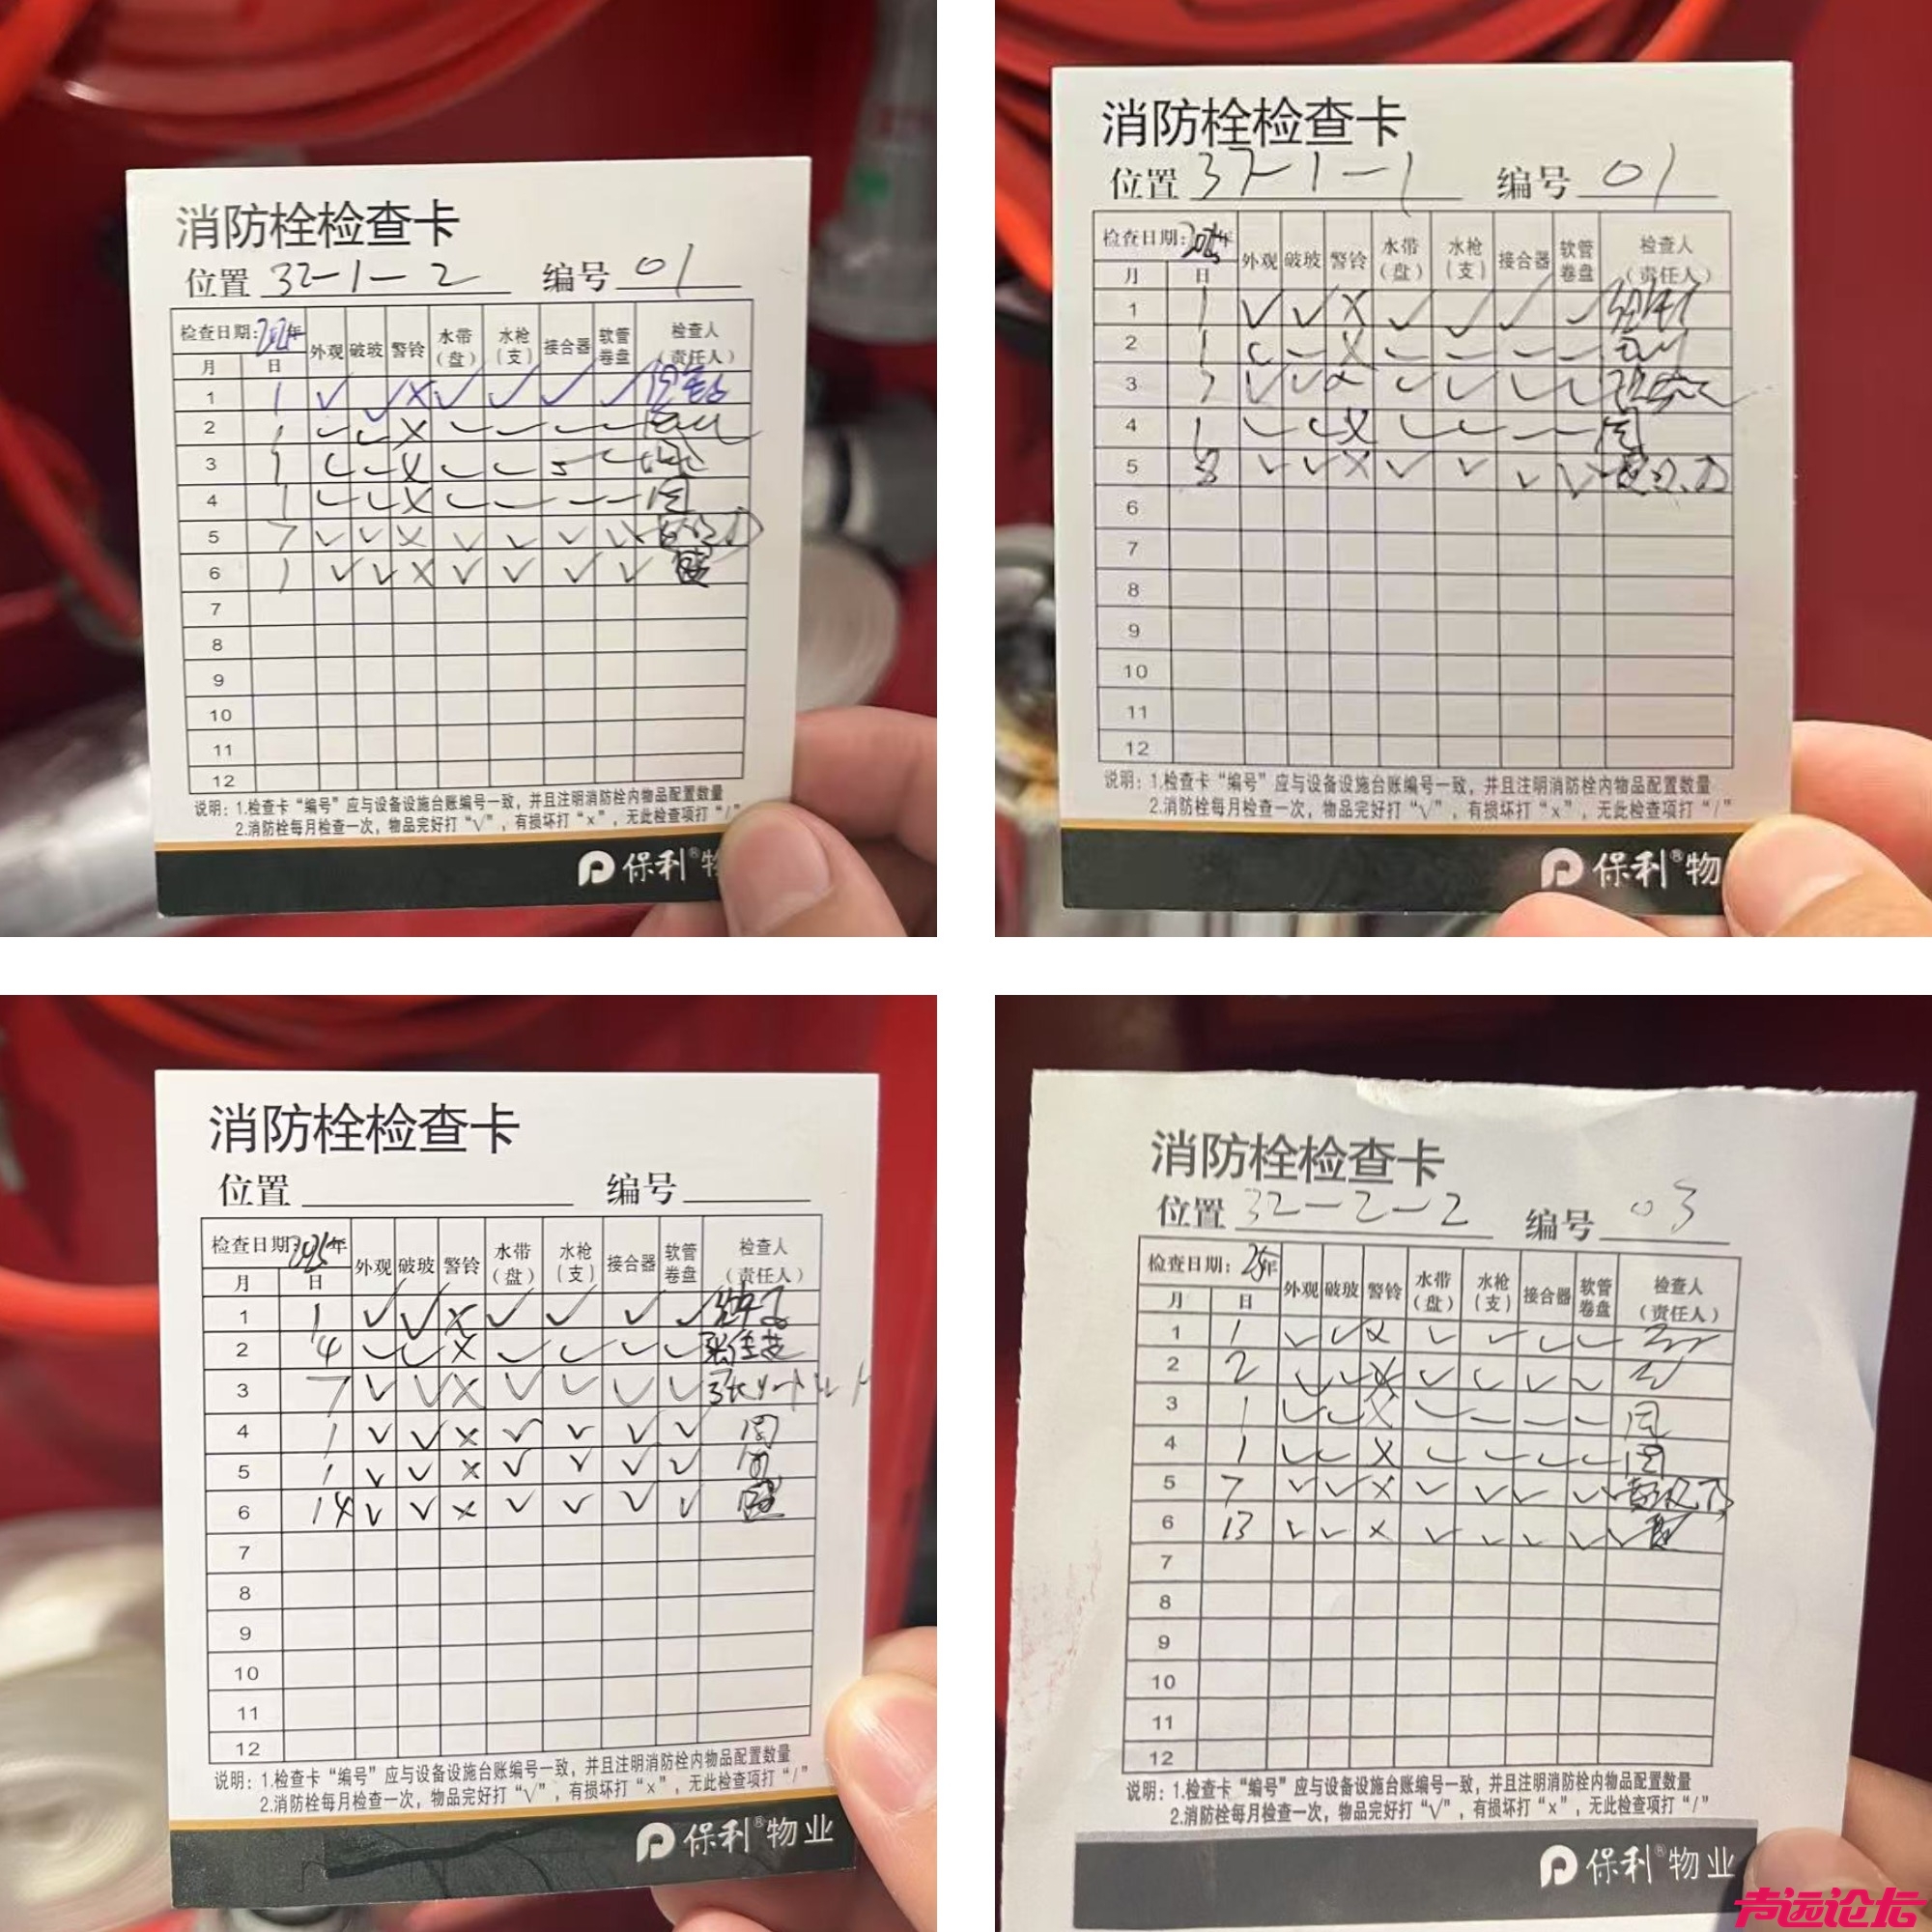 消防栓检查卡
位置 32-1-2 编号 01
检查日期: 年 外观 破玻 警铃 水带(盘) 水枪(支) 接合器 软管卷盘 检查人(责任人)
月 日
1 1 √ √ × √ √ √ √
2 1 √ √ × √ √ √ √
3 1 √ √ × √ √ √ √
4 1 √ √ × √ √ √ √ 周
5 7 √ √ × √ √ √ √
6 1 √ √ × √ √ √ √
7
8
9
10
11
12
说明: 1.检查卡“编号”应与设备设施台账编号一致，并且注明消防栓内物品配置数量
2.消防栓每月检查一次，物品完好打“√”，有损坏打“×”，无此检查项打“/”
保利®物
消防栓检查卡
位置 37-1-1 编号 01
检查日期: 年 外观 破玻 警铃 水带(盘) 水枪(支) 接合器 软管卷盘 检查人(责任人)
月 日
1 1 √ √ × √ √ √ √
2 1 √ √ × √ √ √ √
3 √ √ × √ √ √ √
4 1 √ √ × √ √ √ √ 周
5 8 √ √ × √ √ √ √
6
7
8
9
10
11
12
说明: 1.检查卡“编号”应与设备设施台账编号一致，并且注明消防栓内物品配置数量
2.消防栓每月检查一次，物品完好打“√”，有损坏打“×”，无此检查项打“/”
保利®物
消防栓检查卡
位置 编号
检查日期: 2025年 外观 破玻 警铃 水带(盘) 水枪(支) 接合器 软管卷盘 检查人(责任人)
月 日
1 1 √ √ × √ √ √ √
2 4 √ √ × √ √ √ √ 张佳艺
3 7 √ √ × √ √ √ √ 张
4 1 √ √ × √ √ √ √ 周
5 1 √ √ × √ √ √ √ 周
6 14 √ √ × √ √ √ √
7
8
9
10
11
12
说明: 1.检查卡“编号”应与设备设施台账编号一致，并且注明消防栓内物品配置数量
2.消防栓每月检查一次，物品完好打“√”，有损坏打“×”，无此检查项打“/”
保利®物业
消防栓检查卡
位置 32-2-2 编号 03
检查日期: 25年 外观 破玻 警铃 水带(盘) 水枪(支) 接合器 软管卷盘 检查人(责任人)
月 日
1 1 √ √ × √ √ √ √
2 2 √ √ × √ √ √ √
3 1 √ √ × √ √ √ √ 周
4 1 √ √ × √ √ √ √ 周
5 7 √ √ × √ √ √ √
6 13 √ √ × √ √ √ √
7
8
9
10
11
12
说明: 1.检查卡“编号”应与设备设施台账编号一致，并且注明消防栓内物品配置数量
2.消防栓每月检查一次，物品完好打“√”，有损坏打“×”，无此检查项打“/”
保利®物业
声远论坛